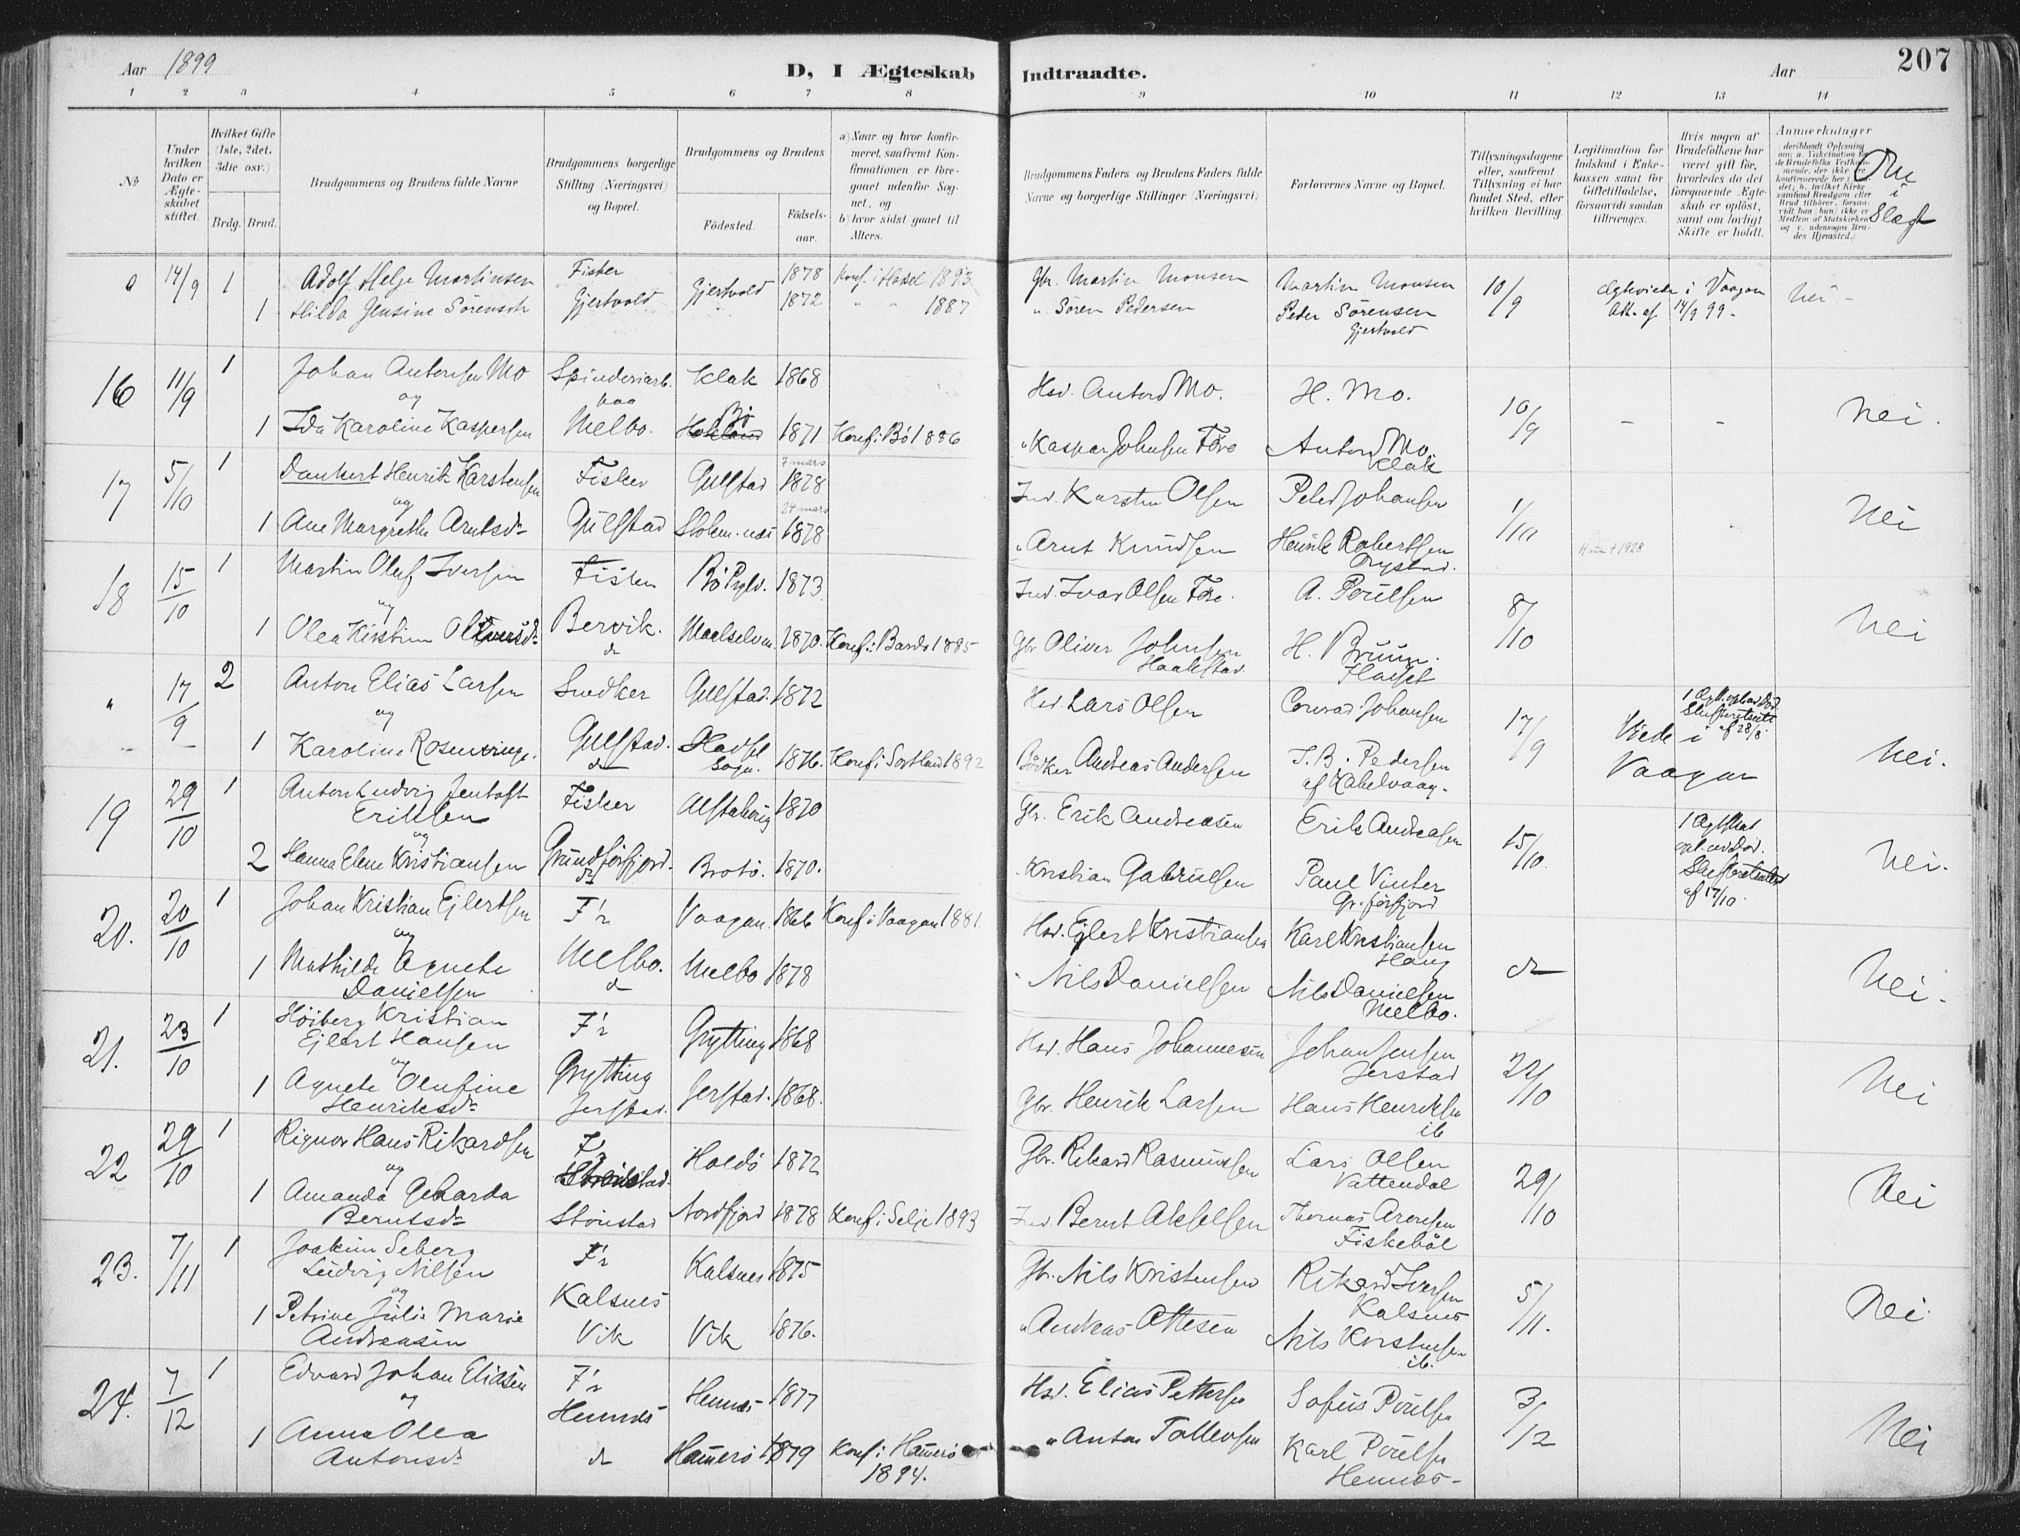 Aar 1899
D, I Ægteskab Indtraadte.
Aar
207
1 2 3 4 5 6 7 8 9 10 11 12 13 14
No
Under hvilken Dato er Ægteskabet stiftet.
Hvilket Gifte (1ste, 2det, 3die osv.)
Brdg. Brud.
Brudgommens og Brudens fulde Navne
Brudgommens borgerlige Stilling (Næringsvei) og Bopæl.
Brudgommens og Brudens
Fødested.
Fødselsaar.
a) Naar og hvor konfirmeret, saafremt Konfirmationen er foregaaet udenfor Sognet, og
b) hvor sidst gaaet til Alters.
Brudgommens Faders og Brudens Faders fulde Navne og borgerlige Stillinger (Næringsvei)
Forlovernes Navne og Bopæl.
Tillysningsdagene eller, saafremt Tillysning ei har fundet Sted, efter hvilken Bevilling.
Legitimation for Indskud i Enkekassen samt for Giftetilladelse, forsaavidt saadan tiltrænges.
Hvis nogen af Brudefolkene har været gift før, hvorledes da det foregaaende Ægteskab er opløst, samt om lovligt Skifte er holdt.
Anmærkninger
Om i Slægt
0 14/9 1 Adolf Helge Martinsen Fisker Gjertvold 1878 Konf. i Hadsel 1893 Gbr. Martin Monsen Martin Monsen 10/9 Ægteviede i Vaagan Nei -
1 Hilda Jensine Sörensdr Gjertvold 1872 " " 1887 " Sören Pedersen Peder Sörensen Att. af 14/9 99 -
Gjertvold
16 11/9 1 Johan Antonsen Mo Spinderiarb. Klak 1868 Hsd. Anton Mo. H. Mo. 10/9 - - Nei.
og paa Bö
1 Ida Karoline Kaspersen Melbo. 1871 Konf. i Bö 1886 " Kaspar Johnsen Före Anton Mo.
Klak
17 5/10 1 Dankert Henrik Karstensen Fisker Gulstad 7 mars 1878 Ind. Karsten Olsen Peder Johansen 1/10 Nei
og 24 mars
1 Ane Margrethe Arntsdr Gulstad Stokmnæs 1878 " Arnt Knudsen Henrik Robertsen
18 15/10 1 Martin Oluf Iversen Fisker Bö Pgld. 1873. Ind. Ivar Olsen Före. A. Poulsen 8/10 Nei
og
1 Olea Kirstine Oliversdr Bervik. Maalselven. 1870. Konf. i Bardo 1885 Gbr. Oliver Johnsen H. Bruun.
d Haakstad Flaset
" 17/9 2 Anton Elias Larsen Snedker Gulstad. 1872 Hsd. Lars Olsen Conrad Johansen 17/9 Viede i Vaagan Nei.
og
1 Karoline Rosenvinge. Gulstad. d Hadsel Sogn. 1876. Konf. i Sortland 1892 Bödker Andreas Andersen J. B. Pedersen
af Kabelvaag.
19 29/10 1 Anton Ludvig Jentoft Fisker 1870 Gbr. Erik Andreasen Erik Andreasen 15/10. Nei.
Eriksen
og
2 Hanna Elene Kristiansen Grundförfjord. Brotö. 1870. " Kristian Gabrielsen Paul Vinter
Gr. förfjord af 17/10.
20. 20/10 1 Johan Kristian Ejlertsen F'r Vaagan. 1866 Konf. i Vaagan 1881. Hsd. Ejlert Kristiansen Karl Kristiansen d Nei.
og Haug
1 Mathilde Agnete Melbo. Melbo 1878 " Nils Danielsen Nils Danielsen
Danielsen d Melbo.
21. 23/10 1 Höiberg Kristian F'r Grytting 1868 Hsd. Hans Johannesen Johan Jensen 22/10 Nei
Ejlert Hansen Jerstad
og
1 Agnete Olufine Grytting Jerstad. 1868. Gbr. Henrik Larsen Hans Henriksen
Henriksdr Jerstad. ib
22 29/10 1 Rignor Hans Rikardsen F. Holdö 1872 Gbr. Rikard Rasmussen Lars Olsen 29/10 Nei
og Vattendal
1 Amanda Geharda Störstad Nordfjord 1878 Konf. i Selje 1893 Ind. Bernt Akselsen Thomas Arensen
Berntsdr Fiskeböl
23. 7/11 1 Joakim Seberg F'r Kalsnes 1875 Gbr. Nils Kristensen Rikard Iversen 5/11. Nei.
Ludvig Nilsen Kalsnes
og
1 Petrine Julie Marie Kalsnes Vik 1876. " Andreas Ottesen Nils Kristensen
Andreasen Vik ib.
24. 7/12 1 Edvard Johan Eliasen F'r Hennes 1877 Hsd. Elias Pettersen Sofus Poulsen 3/12 Nei
og Hennes
1 Anna Olea d Hamerö 1879 Konf. i Hamerö " Anton Tollevsen Karl Poulsen
Antonsdr 1894. Hennes -